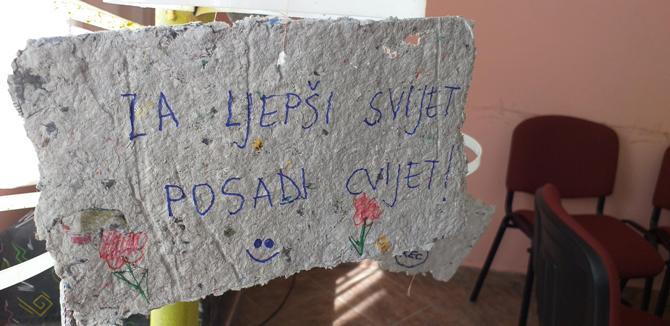 ZA LJEPŠI SVIJET
POSADI CVIJET!